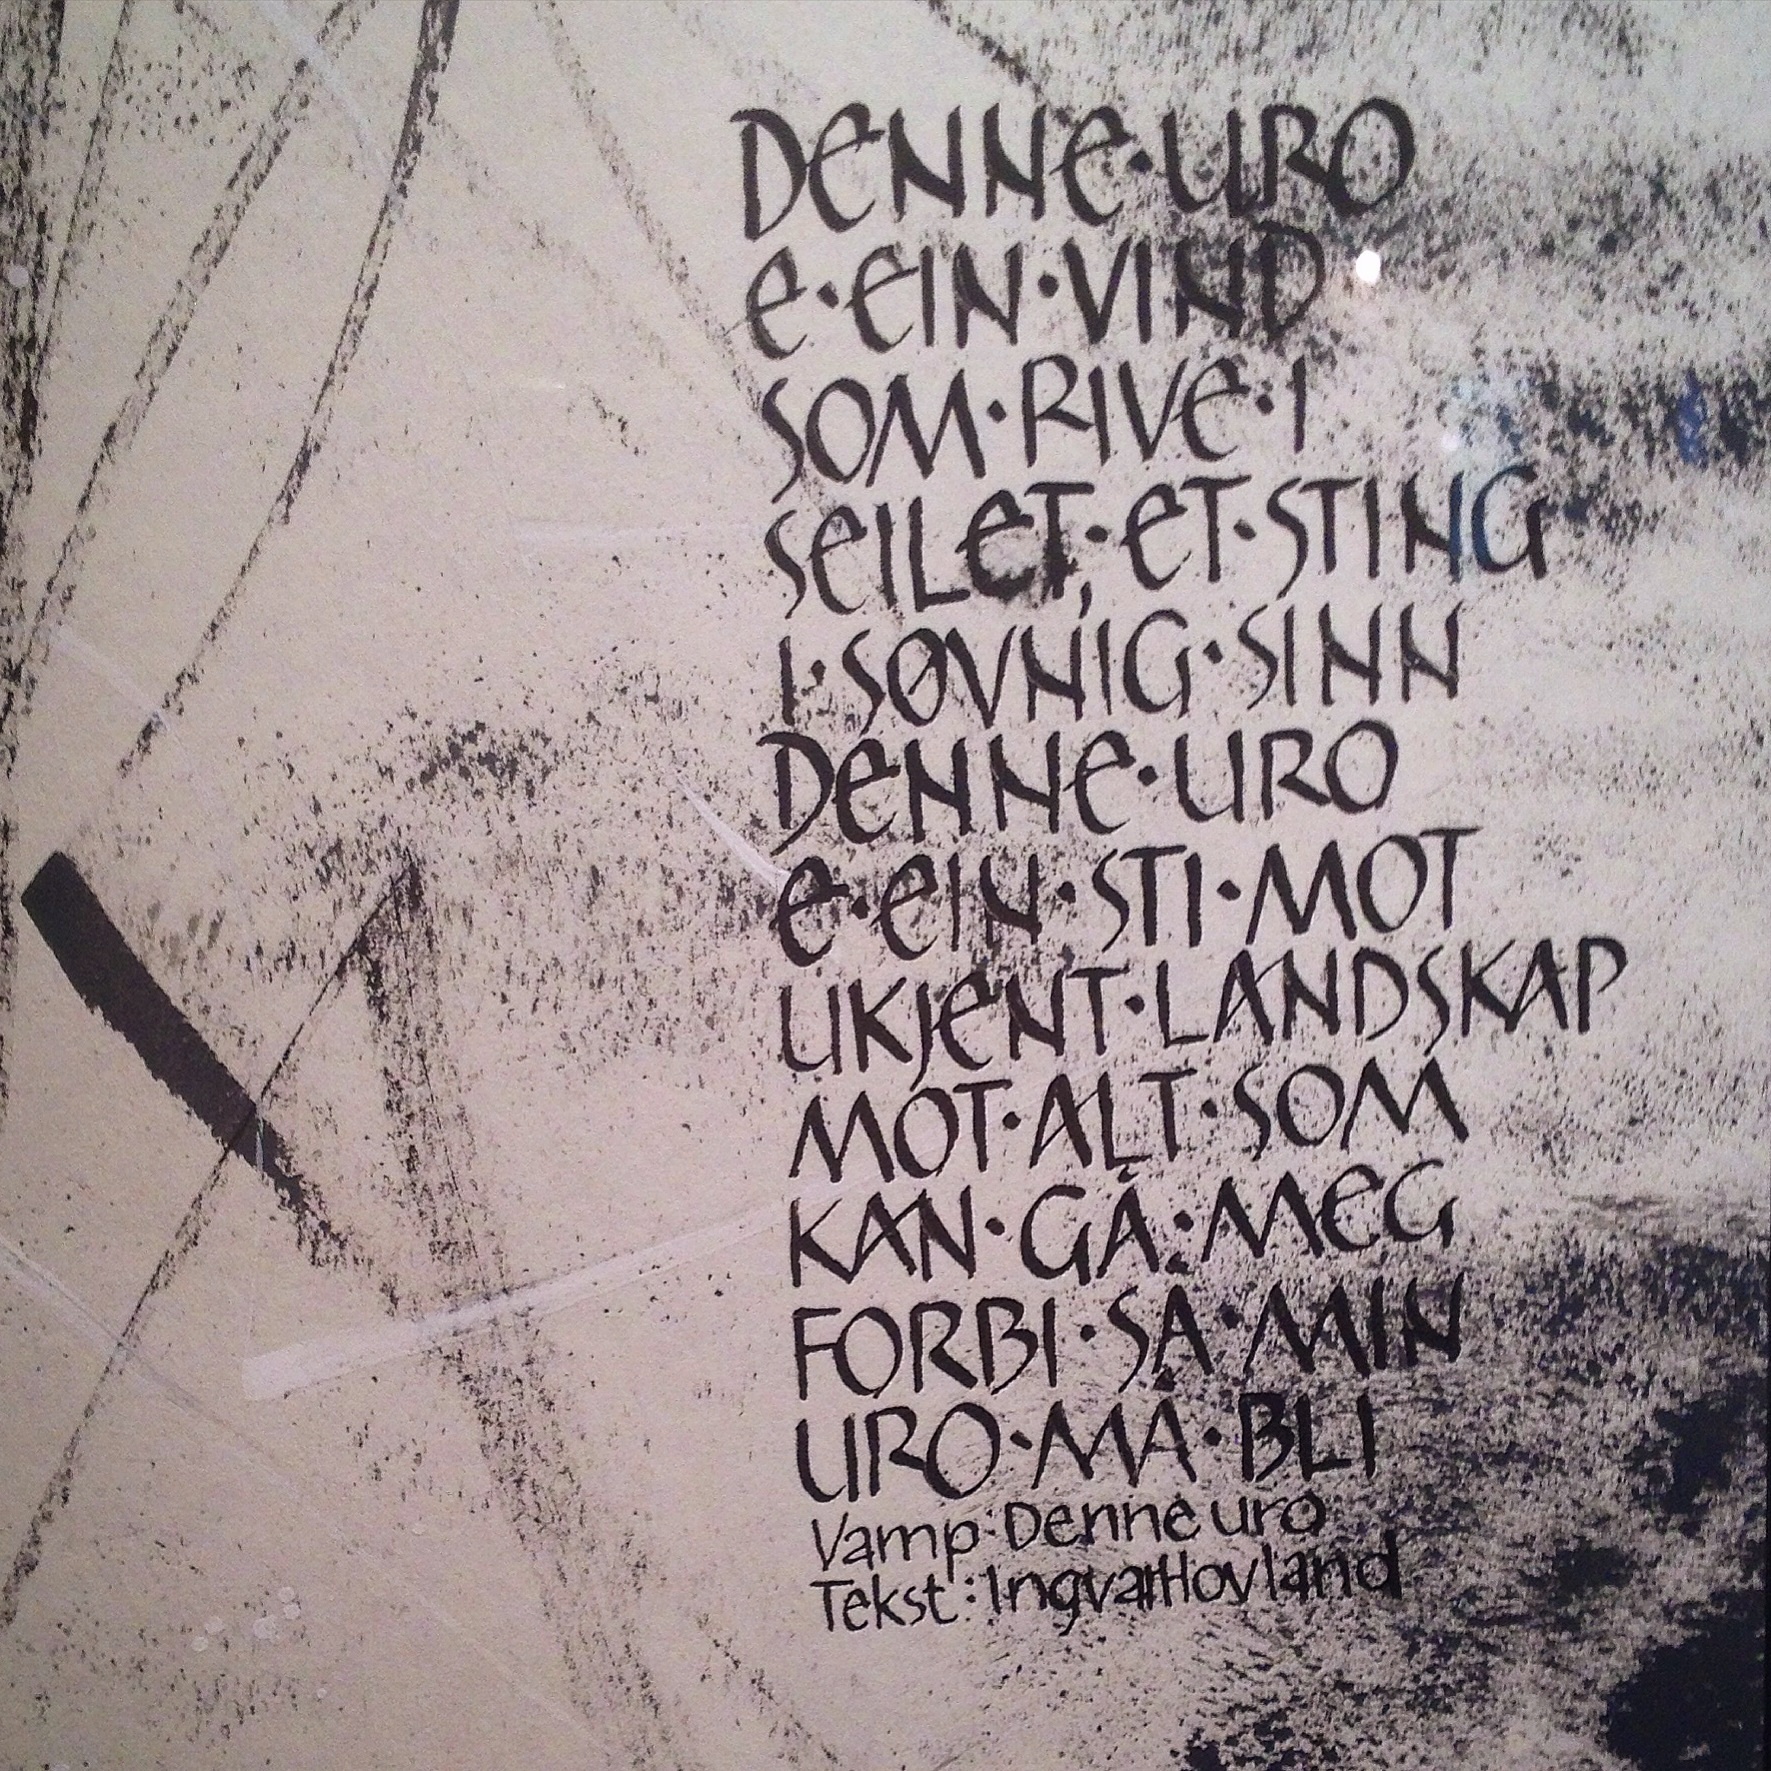 DENNE·URO
E·EIN·VIND
SOM·RIVE·I
SEILET,·ET·STING
I·SØVNIG·SINN
DENNE·URO
E·EIN·STI·MOT
UKJENT·LANDSKAP
MOT·ALT·SOM
KAN·GÅ·MEG
FORBI·SÅ·MIN
URO·MÅ·BLI
Vamp: Denne uro
Tekst: Ingvar Hovland